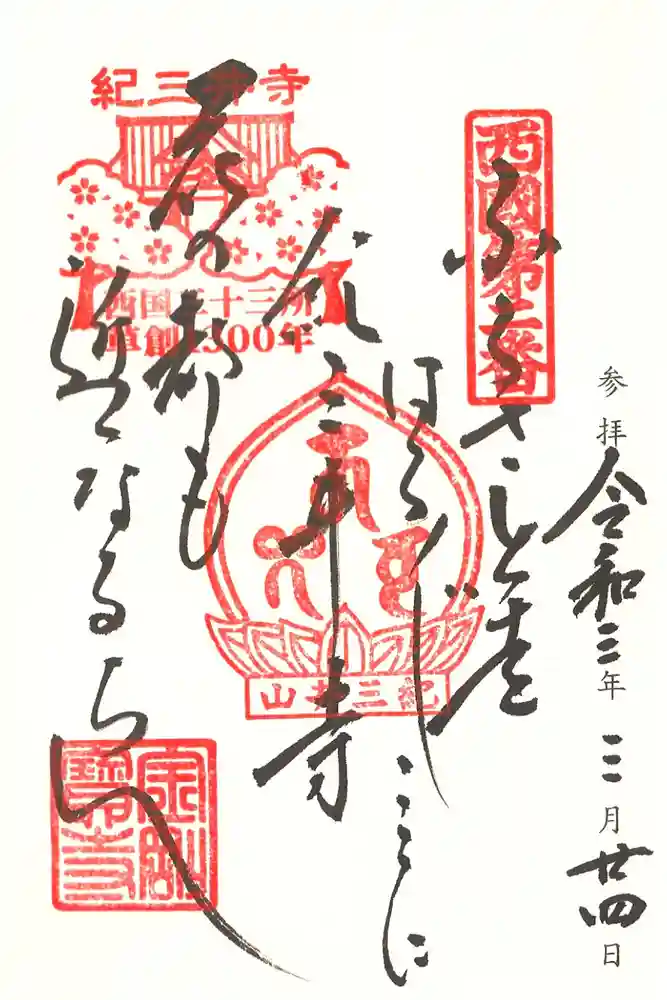 参拝 令和三年 三月廿四日
西國第二番
ふるさとを
はるばるここに
紀三井寺
花の都も
近くなるらん
紀三井寺
西国三十三所
草創1300年
紀三井山
金剛寶寺